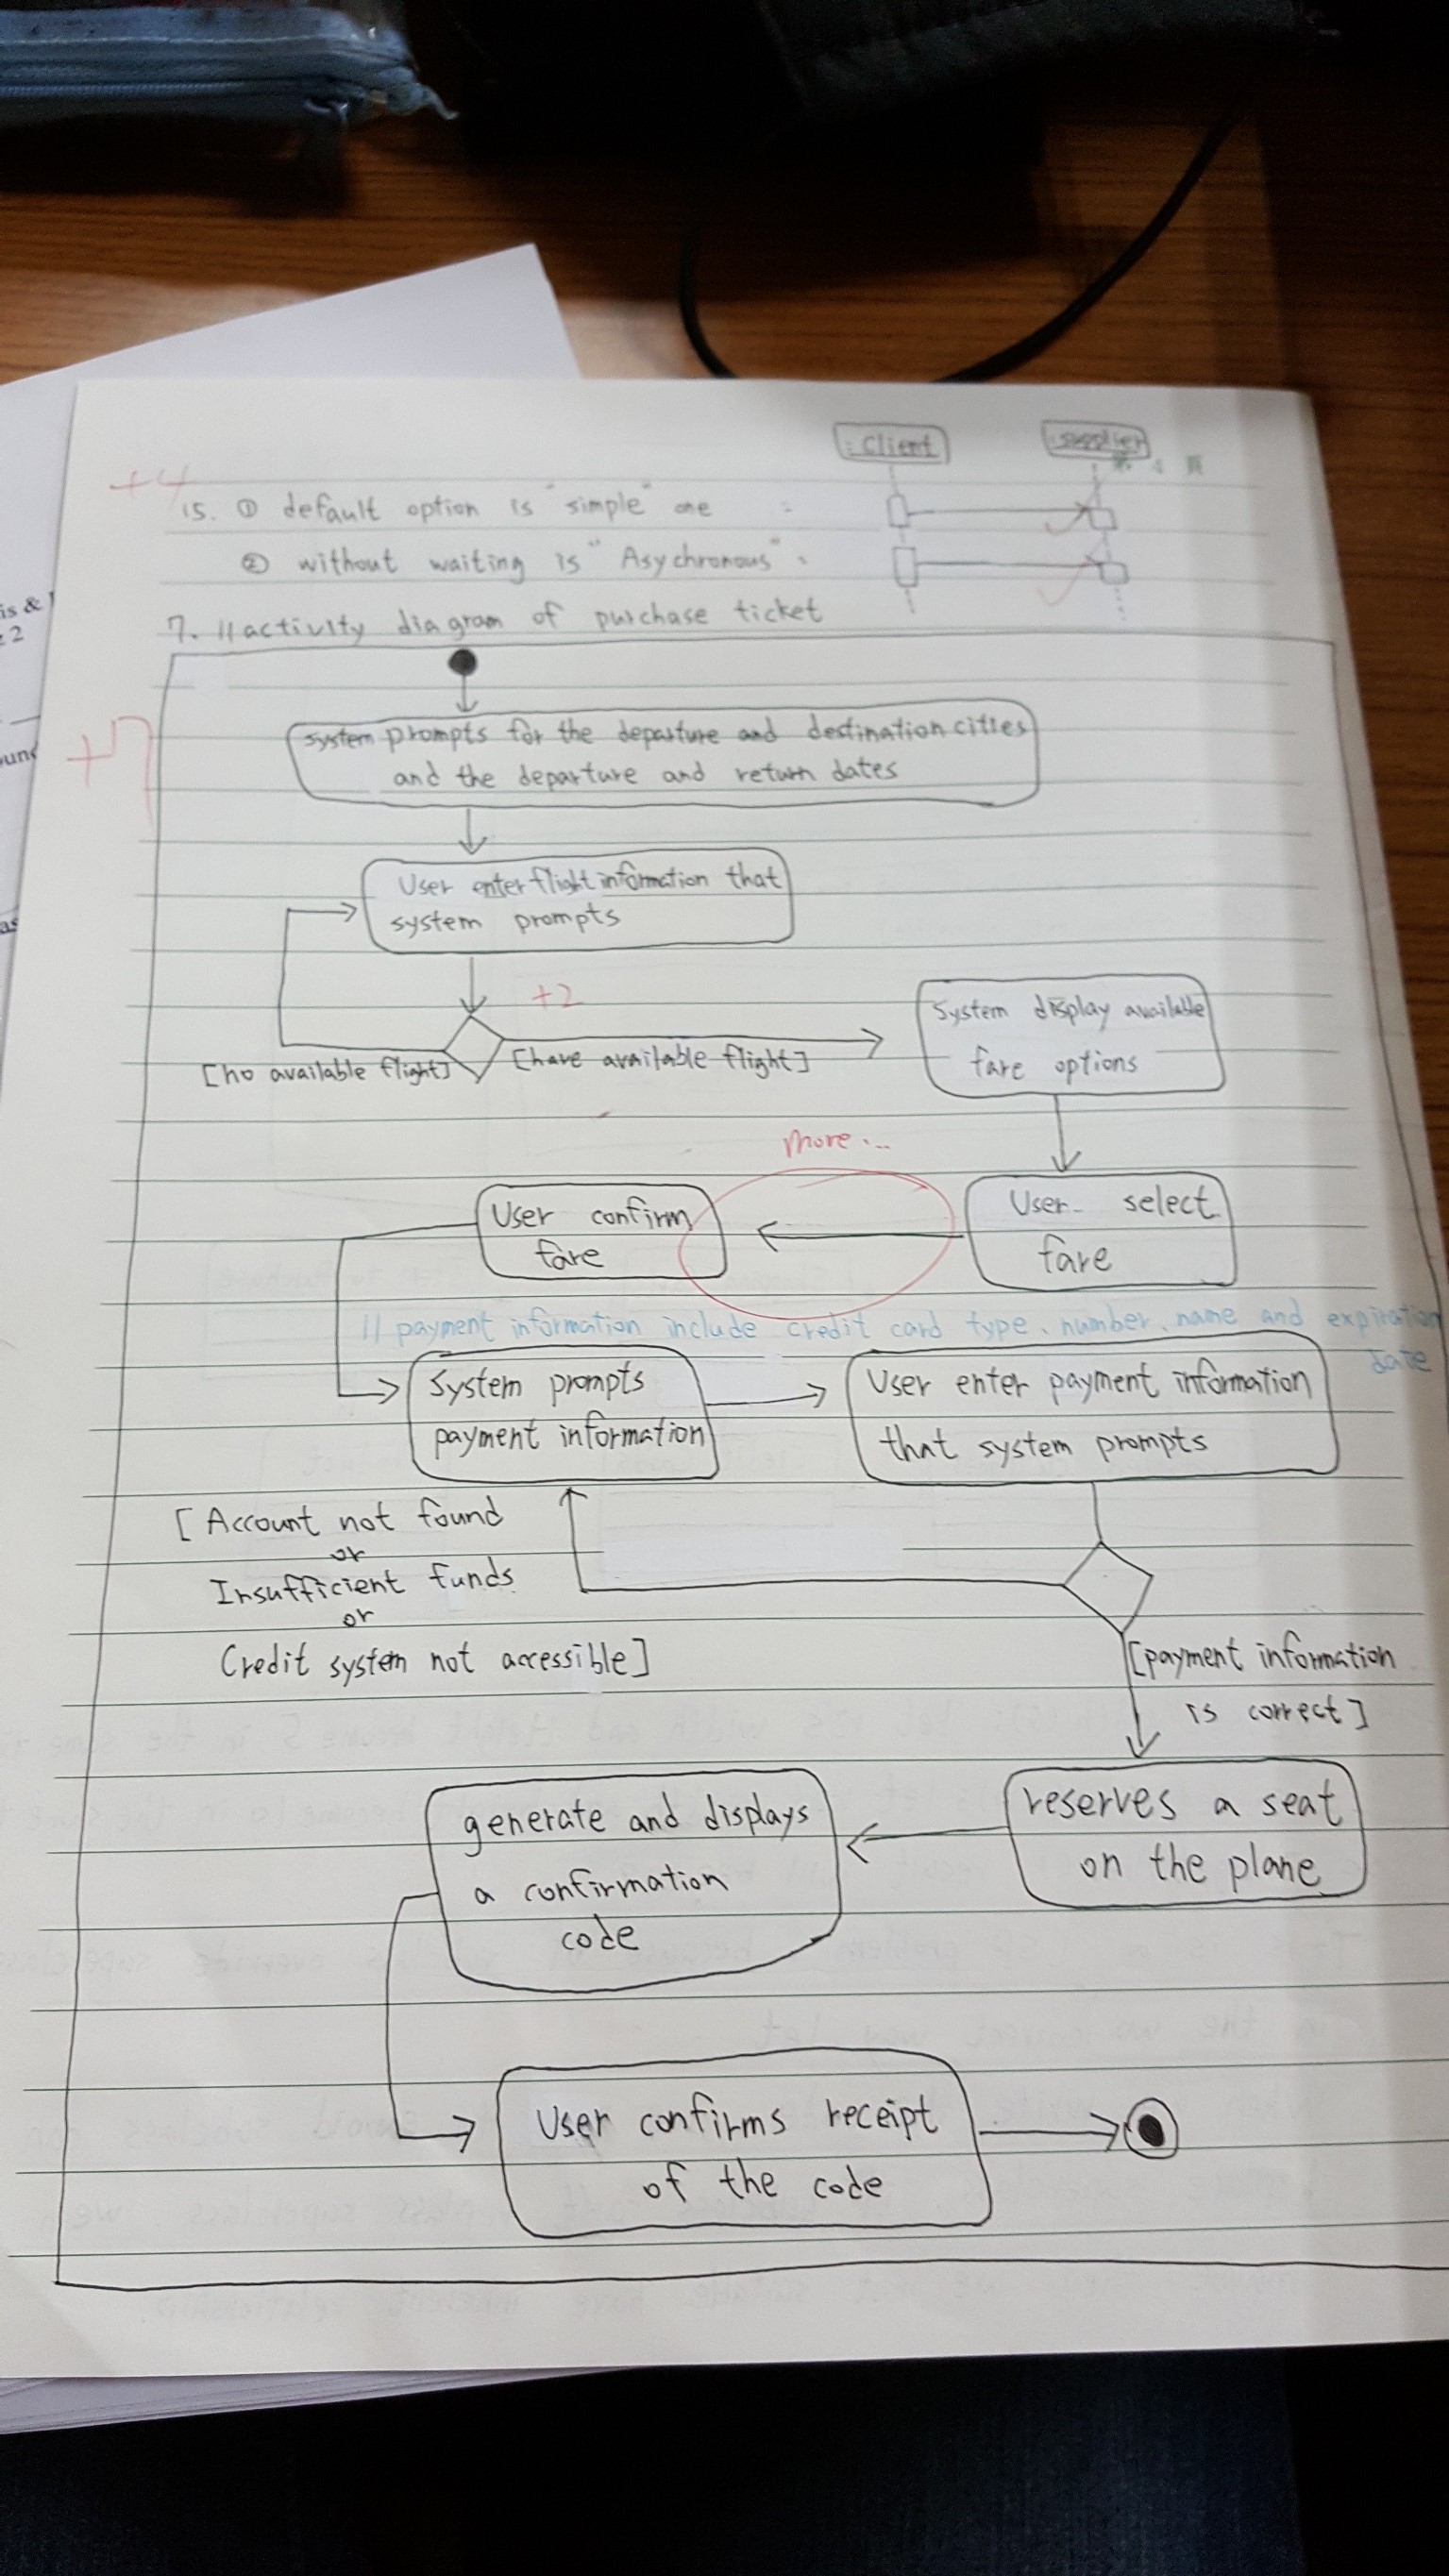 :Client
:supplier
第 4 頁
+4
15. ① default option is "simple" one :
② without waiting is "Asychronous".
7. //activity diagram of purchase ticket
+7
system prompts for the departure and destination cities
and the departure and return dates
User enter flight information that
system prompts
+2
[no available flight]
[have available flight]
System display available
fare options
more...
User select
fare
User confirm
fare
// payment information include credit card type、number、name and expiration
date
System prompts
payment information
User enter payment information
that system prompts
[Account not found
or
Insufficient funds
or
Credit system not accessible]
[payment information
is correct]
reserves a seat
on the plane
generate and displays
a confirmation
code
User confirms receipt
of the code
is &
2